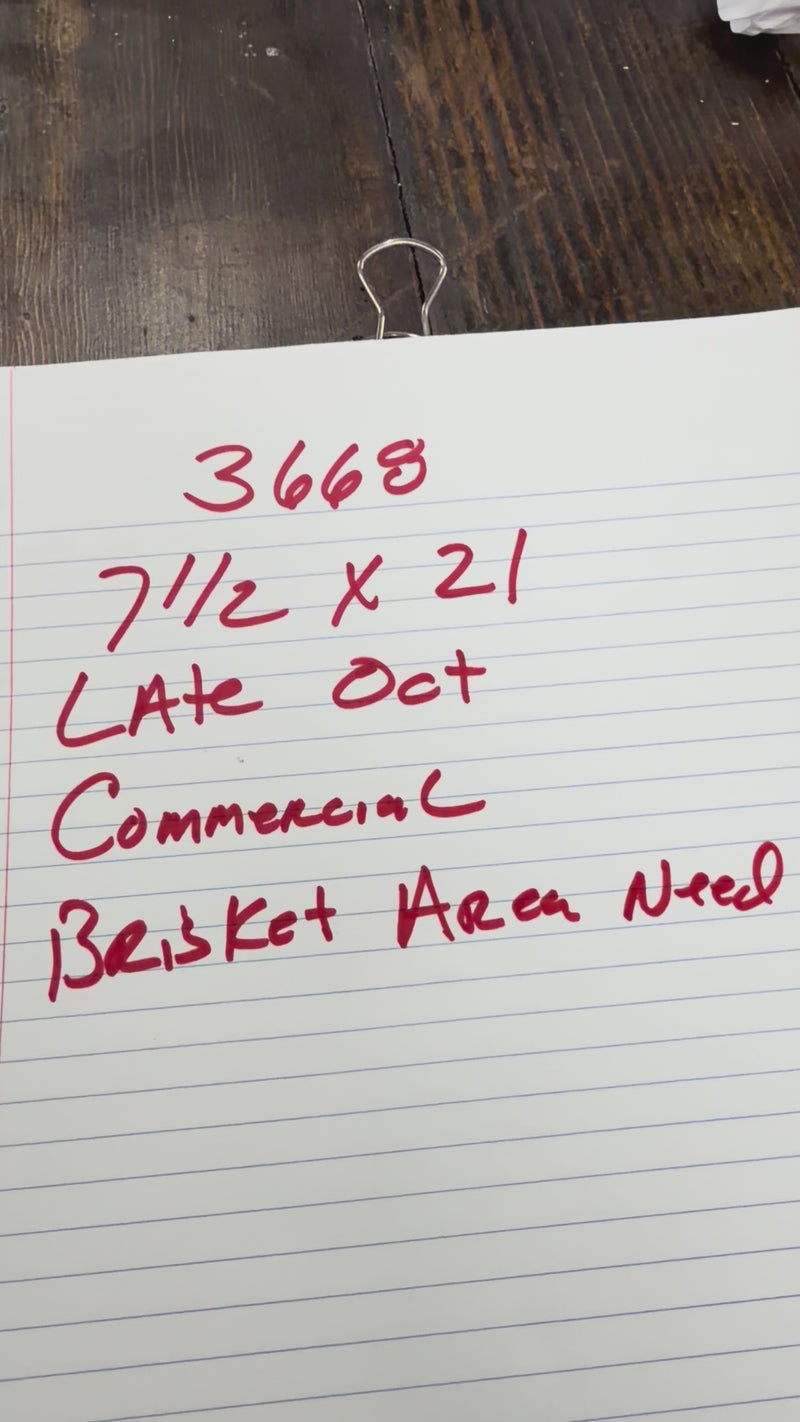 3668
7 1/2 X 21
LAte Oct
Commercial
Brisket Area Need